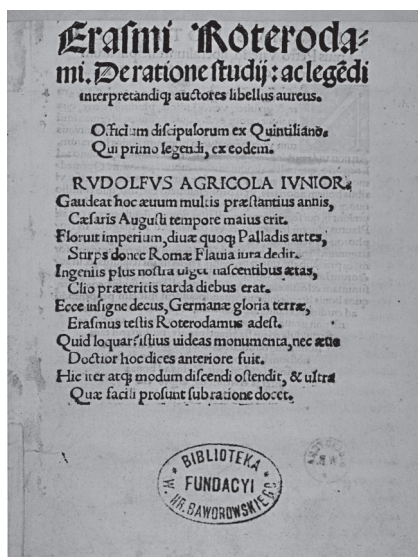 Erasmi Roteroda⸗
mi. De ratione studij: ac legẽdi
interpretandiq; auctores libellus aureus.
Officium discipulorum ex Quintiliano.
Qui primo legendi, ex eodem.
RVDOLFVS AGRICOLA IVNIOR.
Gaudeat hoc æuum multis præstantius annis,
Cæsaris Augusti tempore maius erit.
Floruit imperium, diuæ quoq; Palladis artes,
Stirps donec Romæ Flauia iura dedit.
Ingeniis plus nostra uiget nascentibus ætas,
Clio præteritis tarda diebus erat.
Ecce insigne decus, Germanæ gloria terræ,
Erasmus testis Roterodamus adest.
Quid loquar? istius uideas monumenta, nec ætas
Doctior hoc dices anteriore fuit.
Hic iter atq; modum discendi ostendit, & ultra
Quæ facili prosunt sub ratione docet.
BIBLIOTEKA
FUNDACYI
W. HR. BAWOROWSKIEGO